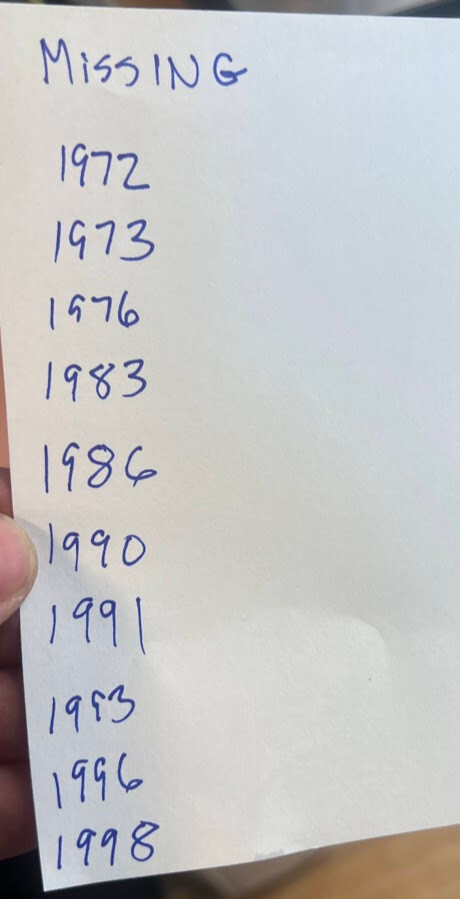 MissING
1972
1973
1976
1983
1986
1990
1991
1993
1996
1998